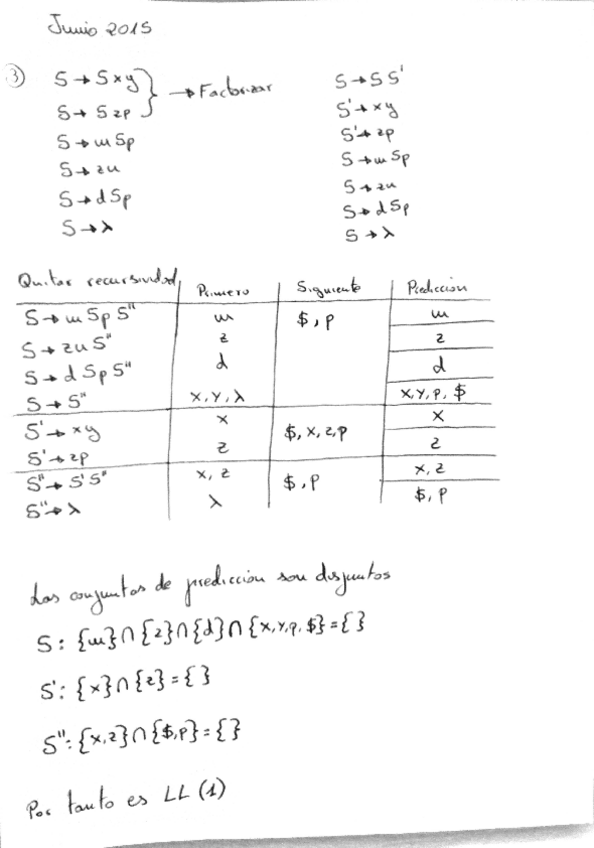 Junio 2015
③ S → Sxy
S → Szp
→ Factorizar
S → mSp
S → zu
S → dSp
S → λ
S → SS'
S' → xy
S' → zp
S → mSp
S → zu
S → dSp
S → λ
Quitar recursividad | Primero | Siguiente | Predicción
S → mSpS'' | m | $, p | m
S → zuS'' | z | z
S → dSpS'' | d | d
S → S'' | x, y, λ | x, y, p, $
S' → xy | x | $, x, z, p | x
S' → zp | z | z
S'' → S'S'' | x, z | $, p | x, z
S'' → λ | λ | $, p
Los conjuntos de predicción son disjuntos
S: {m}∩{z}∩{d}∩{x,y,p,$}={ }
S': {x}∩{z}={ }
S'': {x,z}∩{$,p}={ }
Por tanto es LL(1)